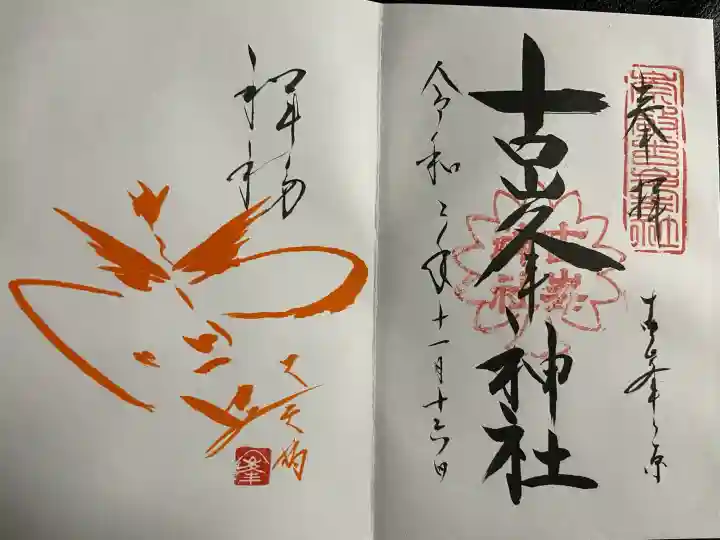 奉拝
古峯ヶ原
古峯神社
古峯神社
令和二年十一月十六日
大天狗